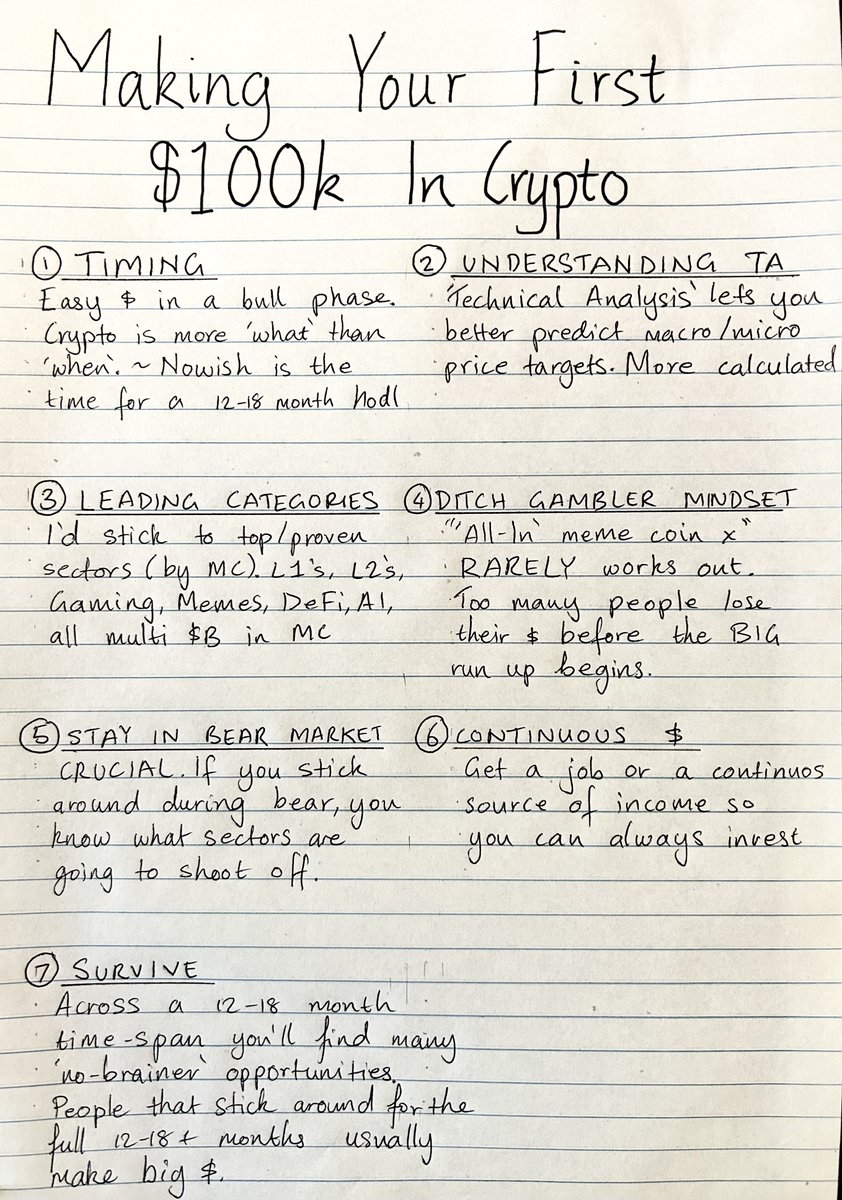 Making Your First
$100k In Crypto
① TIMING
Easy $ in a bull phase.
Crypto is more 'what' than
'when'. ~ Nowish is the
time for a 12-18 month hodl
② UNDERSTANDING TA
'Technical Analysis' lets you
better predict macro/micro
price targets. More calculated
③ LEADING CATEGORIES
I'd stick to top/proven
sectors (by MC). L1's, L2's,
Gaming, Memes, DeFi, AI,
all multi $B in MC
④ DITCH GAMBLER MINDSET
"'All-In' meme coin x"
RARELY works out.
Too many people lose
their $ before the BIG
run up begins.
⑤ STAY IN BEAR MARKET
CRUCIAL. If you stick
around during bear, you
know what sectors are
going to shoot off.
⑥ CONTINUOUS $
Get a job or a continuos
source of income so
you can always invest
⑦ SURVIVE
Across a 12-18 month
time-span you'll find many
'no-brainer' opportunities.
People that stick around for the
full 12-18+ months usually
make big $.